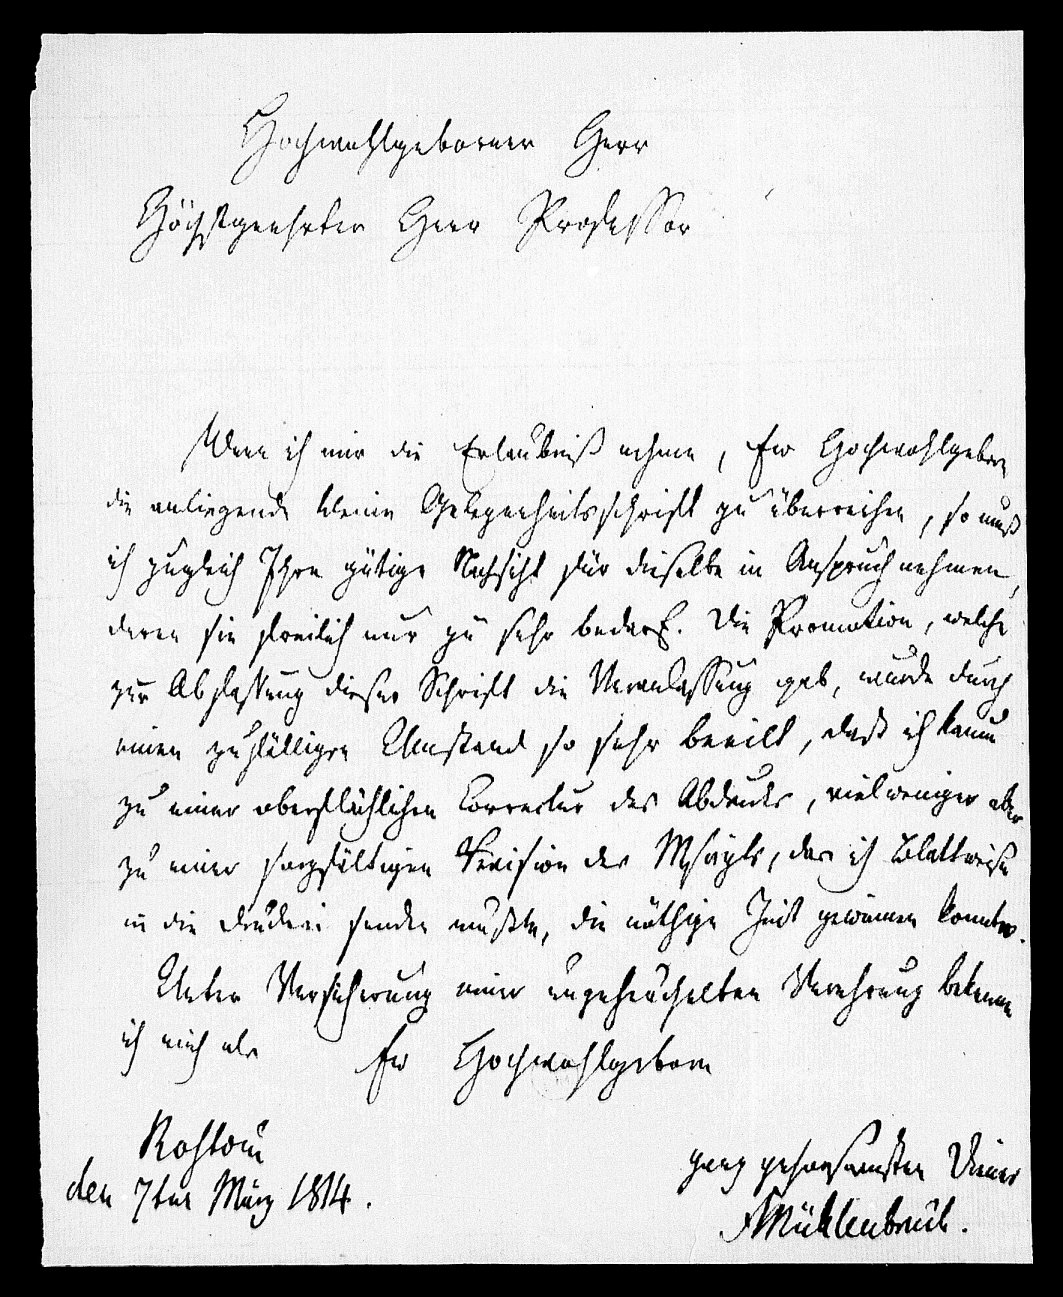 Hochwohlgeborner Herr
Höchstgeehrter Herr Professor
Wenn ich mir die Erlaubniß nehme, Ew Hochwohlgeborn
die anliegende kleine Gelegenheitsschrift zu überreichen, so muß
ich zugleich Ihre gütige Nachsicht für dieselbe in Anspruch nehmen,
deren sie freilich nur zu sehr bedarf. Die Promotion, welche
zur Abfassung dieser Schrift die Veranlassung gab, wurde durch
einen zufälligen Umstand so sehr beeilt, daß ich kaum
zu einer oberflächlichen Correctur des Abdrucks, vielweniger aber
zu einer sorgfältigen Revision des Mscripts, das ich Blattweise
in die Druckerei senden mußte, die nöthige Zeit gewinnen konnte.
Unter Versicherung einer ungeheuchelten Verehrung bekenne
ich mich als Ew Hochwohlgeborn
Rostock
den 7ten März 1814.
ganz gehorsamsten Diener
Mühlenbruch.